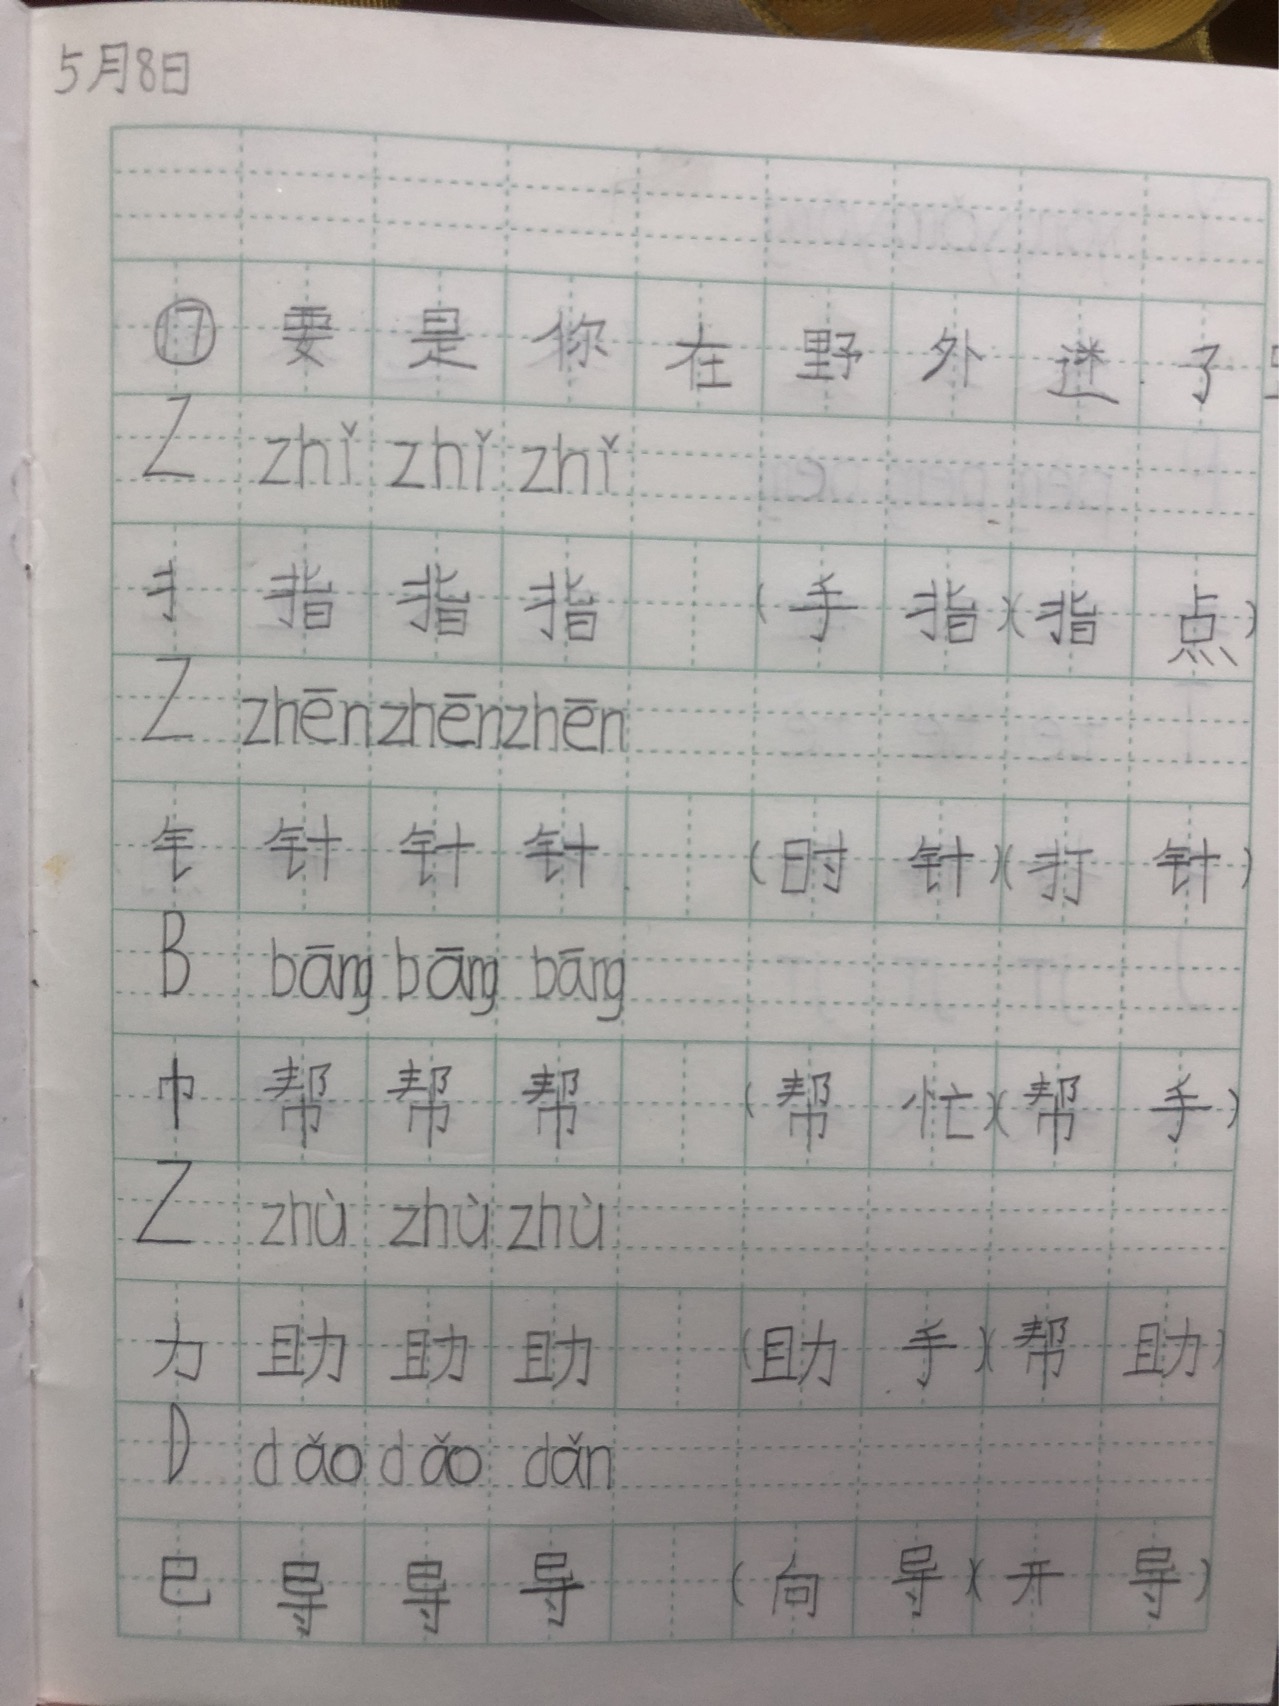 5月8日
⑰要是你在野外迷了
Z zhǐ zhǐ zhǐ
扌 指 指 指 (手指)(指点)
Z zhēn zhēn zhēn
钅 针 针 针 (时针)(打针)
B bāng bāng bāng
巾 帮 帮 帮 (帮忙)(帮手)
Z zhù zhù zhù
力 助 助 助 (助手)(帮助)
D dǎo dǎo dǎn
巳 导 导 导 (向导)(开导)